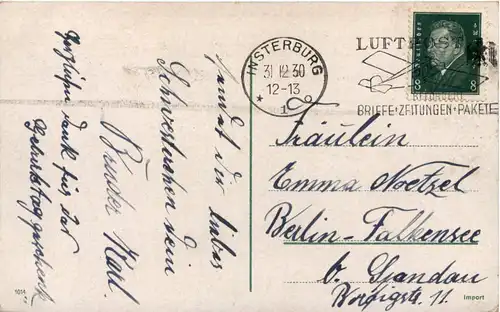 INSTERBURG
31.12.30
12-13
* 1 o
LUFTPOST
BEFÖRDERT
BRIEFE·ZEITUNGEN·PAKETE
8 8
Fräulein
Emma Noetzel
Berlin-Falkensee
b. Spandau
11.
dir liebes
Schwesterchen dein
Bruder Karl.
Herzlichen dank für das
Geburtstagsgeschenk
1014
Import